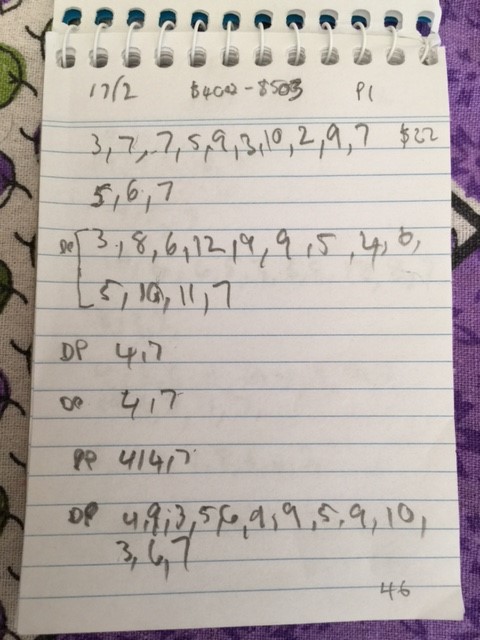 17/2 $400 - $503 P1
3, 7, 7, 5, 9, 3, 10, 2, 9, 7 $22
5, 6, 7
3, 8, 6, 12, 9, 9, 5, 4, 6,
5, 10, 11, 7
DP 4, 7
DP 4, 7
4, 4, 7
DP 4, 9, 3, 5, 6, 9, 9, 5, 9, 10,
3, 6, 7
46